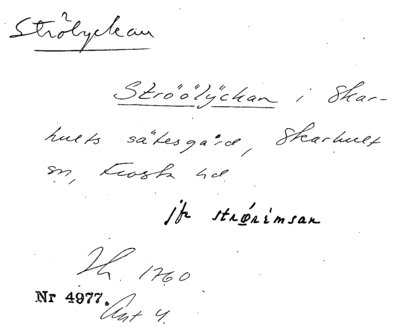 Strölyckan
Ströölÿckan i Skar-
hults sätesgård, Skarhult
sn, Frosta hd
jfr strørimsar
Lh. 1760
Nr 4977. Akt 4.